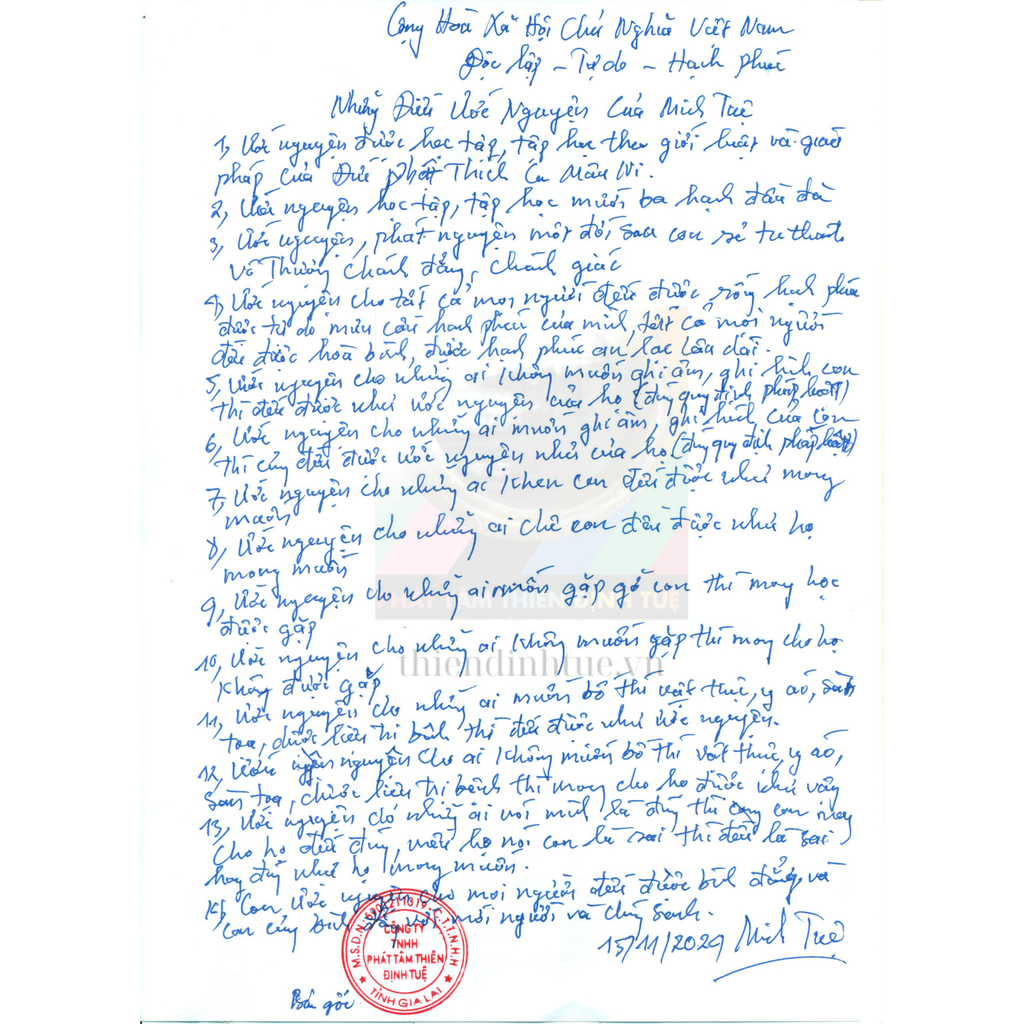 Cộng Hoà Xã Hội Chủ Nghĩa Việt Nam
Độc lập - Tự do - Hạnh phúc
Những Điều Ước Nguyện Của Minh Tuệ
1, Ước nguyện được học tập, tập học theo giới luật và giáo
pháp của Đức Phật Thích Ca Mâu Ni.
2, Ước nguyện học tập, tập học mười ba hạnh đầu đà
3, Ước nguyện, phát nguyện một đời sau con sẽ tu thành
Vô Thượng Chánh đẳng, Chánh giác
4, Ước nguyện cho tất cả mọi người đều được sống hạnh phúc
được tự do mưu cầu hạnh phúc của mình, tất cả mọi người
đều được hoà bình, được hạnh phúc an lạc lâu dài.
5, Ước nguyện cho những ai không muốn ghi âm, ghi hình con
thì đều được như ước nguyện của họ (đúng quy định pháp luật)
6, Ước nguyện cho những ai muốn ghi âm, ghi hình của con
thì cũng đều được ước nguyện như của họ (đúng quy định pháp luật)
7, Ước nguyện cho những ai khen con đều được như mong
muốn
8, Ước nguyện cho những ai chê con đều được như họ
mong muốn
9, Ước nguyện cho những ai muốn gặp gỡ con thì may học
được gặp
PHÁT TÂM THIỀN ĐỊNH TUỆ
10, Ước nguyện cho những ai không muốn gặp thì mong cho họ
không được gặp
thiendinhtue.vn
11, Ước nguyện cho những ai muốn bố thí vật thực, y áo, sàn
toạ, dược liệu trị bệnh thì đều được như ước nguyện.
12, Ước nguyện cho ai không muốn bố thí vật thực, y áo,
sàn toạ, dược liệu trị bệnh thì mong cho họ được như vậy
13, Ước nguyện cho những ai nói mình là đúng thì cong con may
cho họ đều đúng, nếu họ nói con là sai thì đều là sai
hay đúng như họ mong muốn.
14, Con ước nguyện cho mọi người đều được bình đẳng và
con cũng bình đẳng với mọi người và chúng sanh.
15/11/2024 Minh Tuệ
M.S.D.N: 5901211319-C.T.T.N.H.H
CÔNG TY
TNHH
PHÁT TÂM THIỀN
ĐỊNH TUỆ
TỈNH GIA LAI
Bản gốc